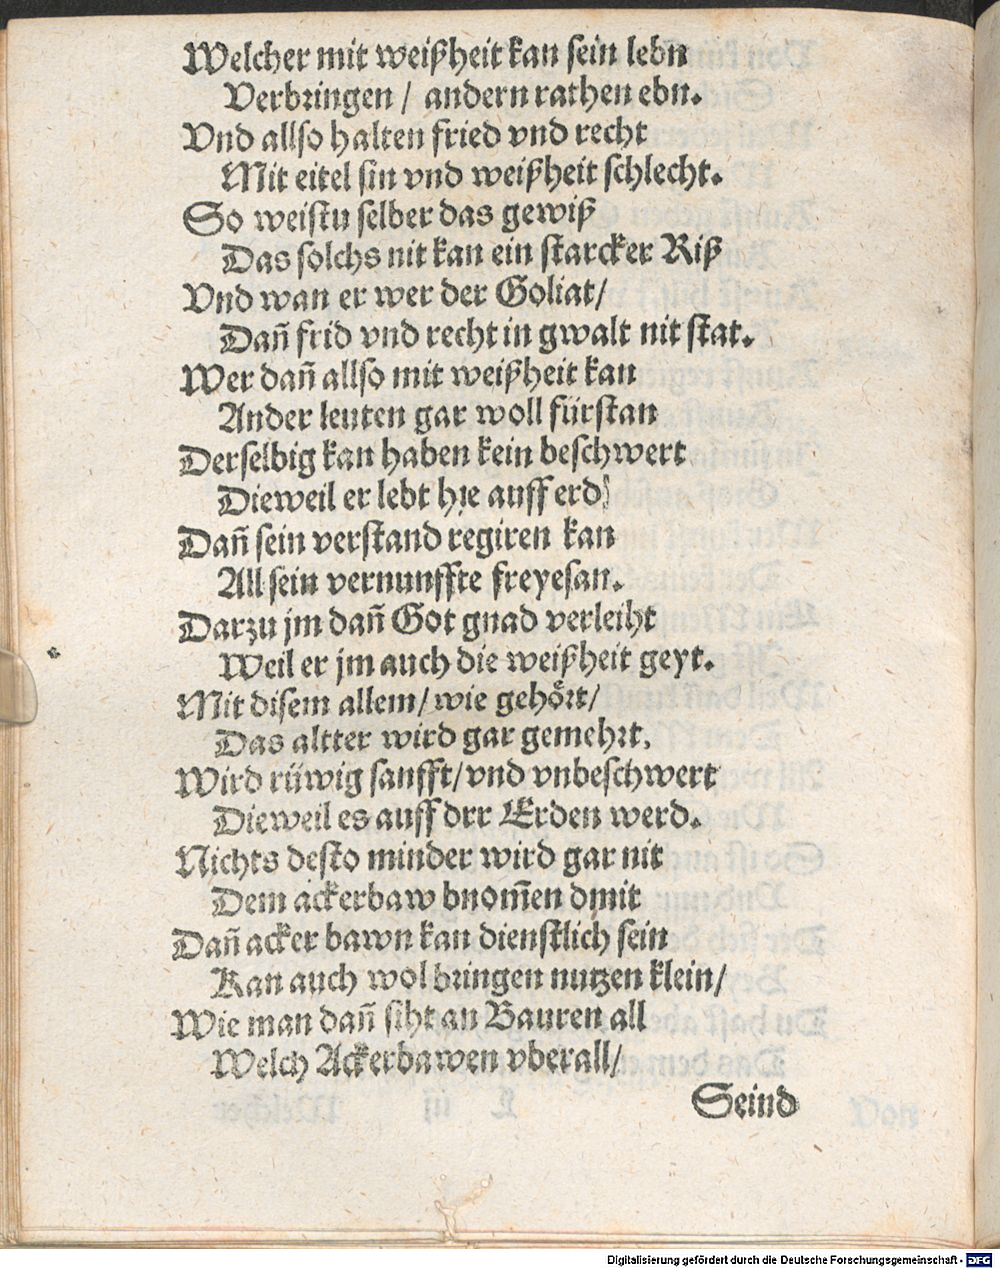 Welcher mit weißheit kan sein lebn
Verbringen / andern rathen ebn.
Vnd allso halten fried vnd recht
Mit eitel sin vnd weißheit schlecht.
So weistu selber das gewiß
Das solchs nit kan ein starcker Riß
Vnd wan er wer der Goliat/
Dañ frid vnd recht in gwalt nit stat.
Wer dañ allso mit weißheit kan
Ander leuten gar woll fürstan
Derselbig kan haben kein beschwert
Dieweil er lebt hie auff erd
Dañ sein verstand regiren kan
All sein vernunffte freyesan.
Darzu jm dañ Got gnad verleiht
Weil er jm auch die weißheit geyt.
Mit disem allem/ wie gehört/
Das altter wird gar gemehrt.
Wird rüwig sanfft/ vnd vnbeschwert
Dieweil es auff drr Erden werd.
Nichts desto minder wird gar nit
Dem ackerbaw bnom̄en dmit
Dañ acker bawn kan dienstlich sein
Kan auch wol bringen nutzen klein/
Wie man dañ siht an Bauren all
Welch Ackerbawen vberall/
Seind
Digitalisierung gefördert durch die Deutsche Forschungsgemeinschaft - DFG